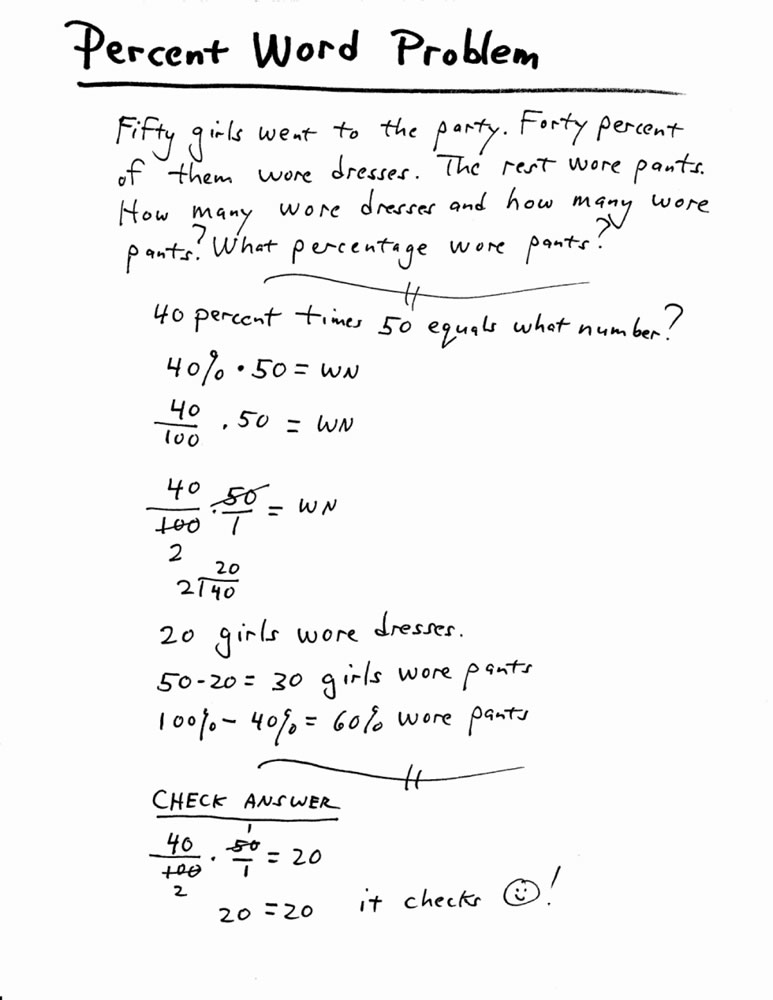 Percent Word Problem
Fifty girls went to the party. Forty percent
of them wore dresses. The rest wore pants.
How many wore dresses and how many wore
pants? What percentage wore pants?
40 percent times 50 equals what number?
40% · 50 = WN
40/100 · 50 = WN
40/100 · 50/1 = WN
2
20
2⟌40
20 girls wore dresses.
50-20 = 30 girls wore pants
100% - 40% = 60% wore pants
CHECK ANSWER
1
40/100 · 50/1 = 20
2
20 = 20 it checks ☺!